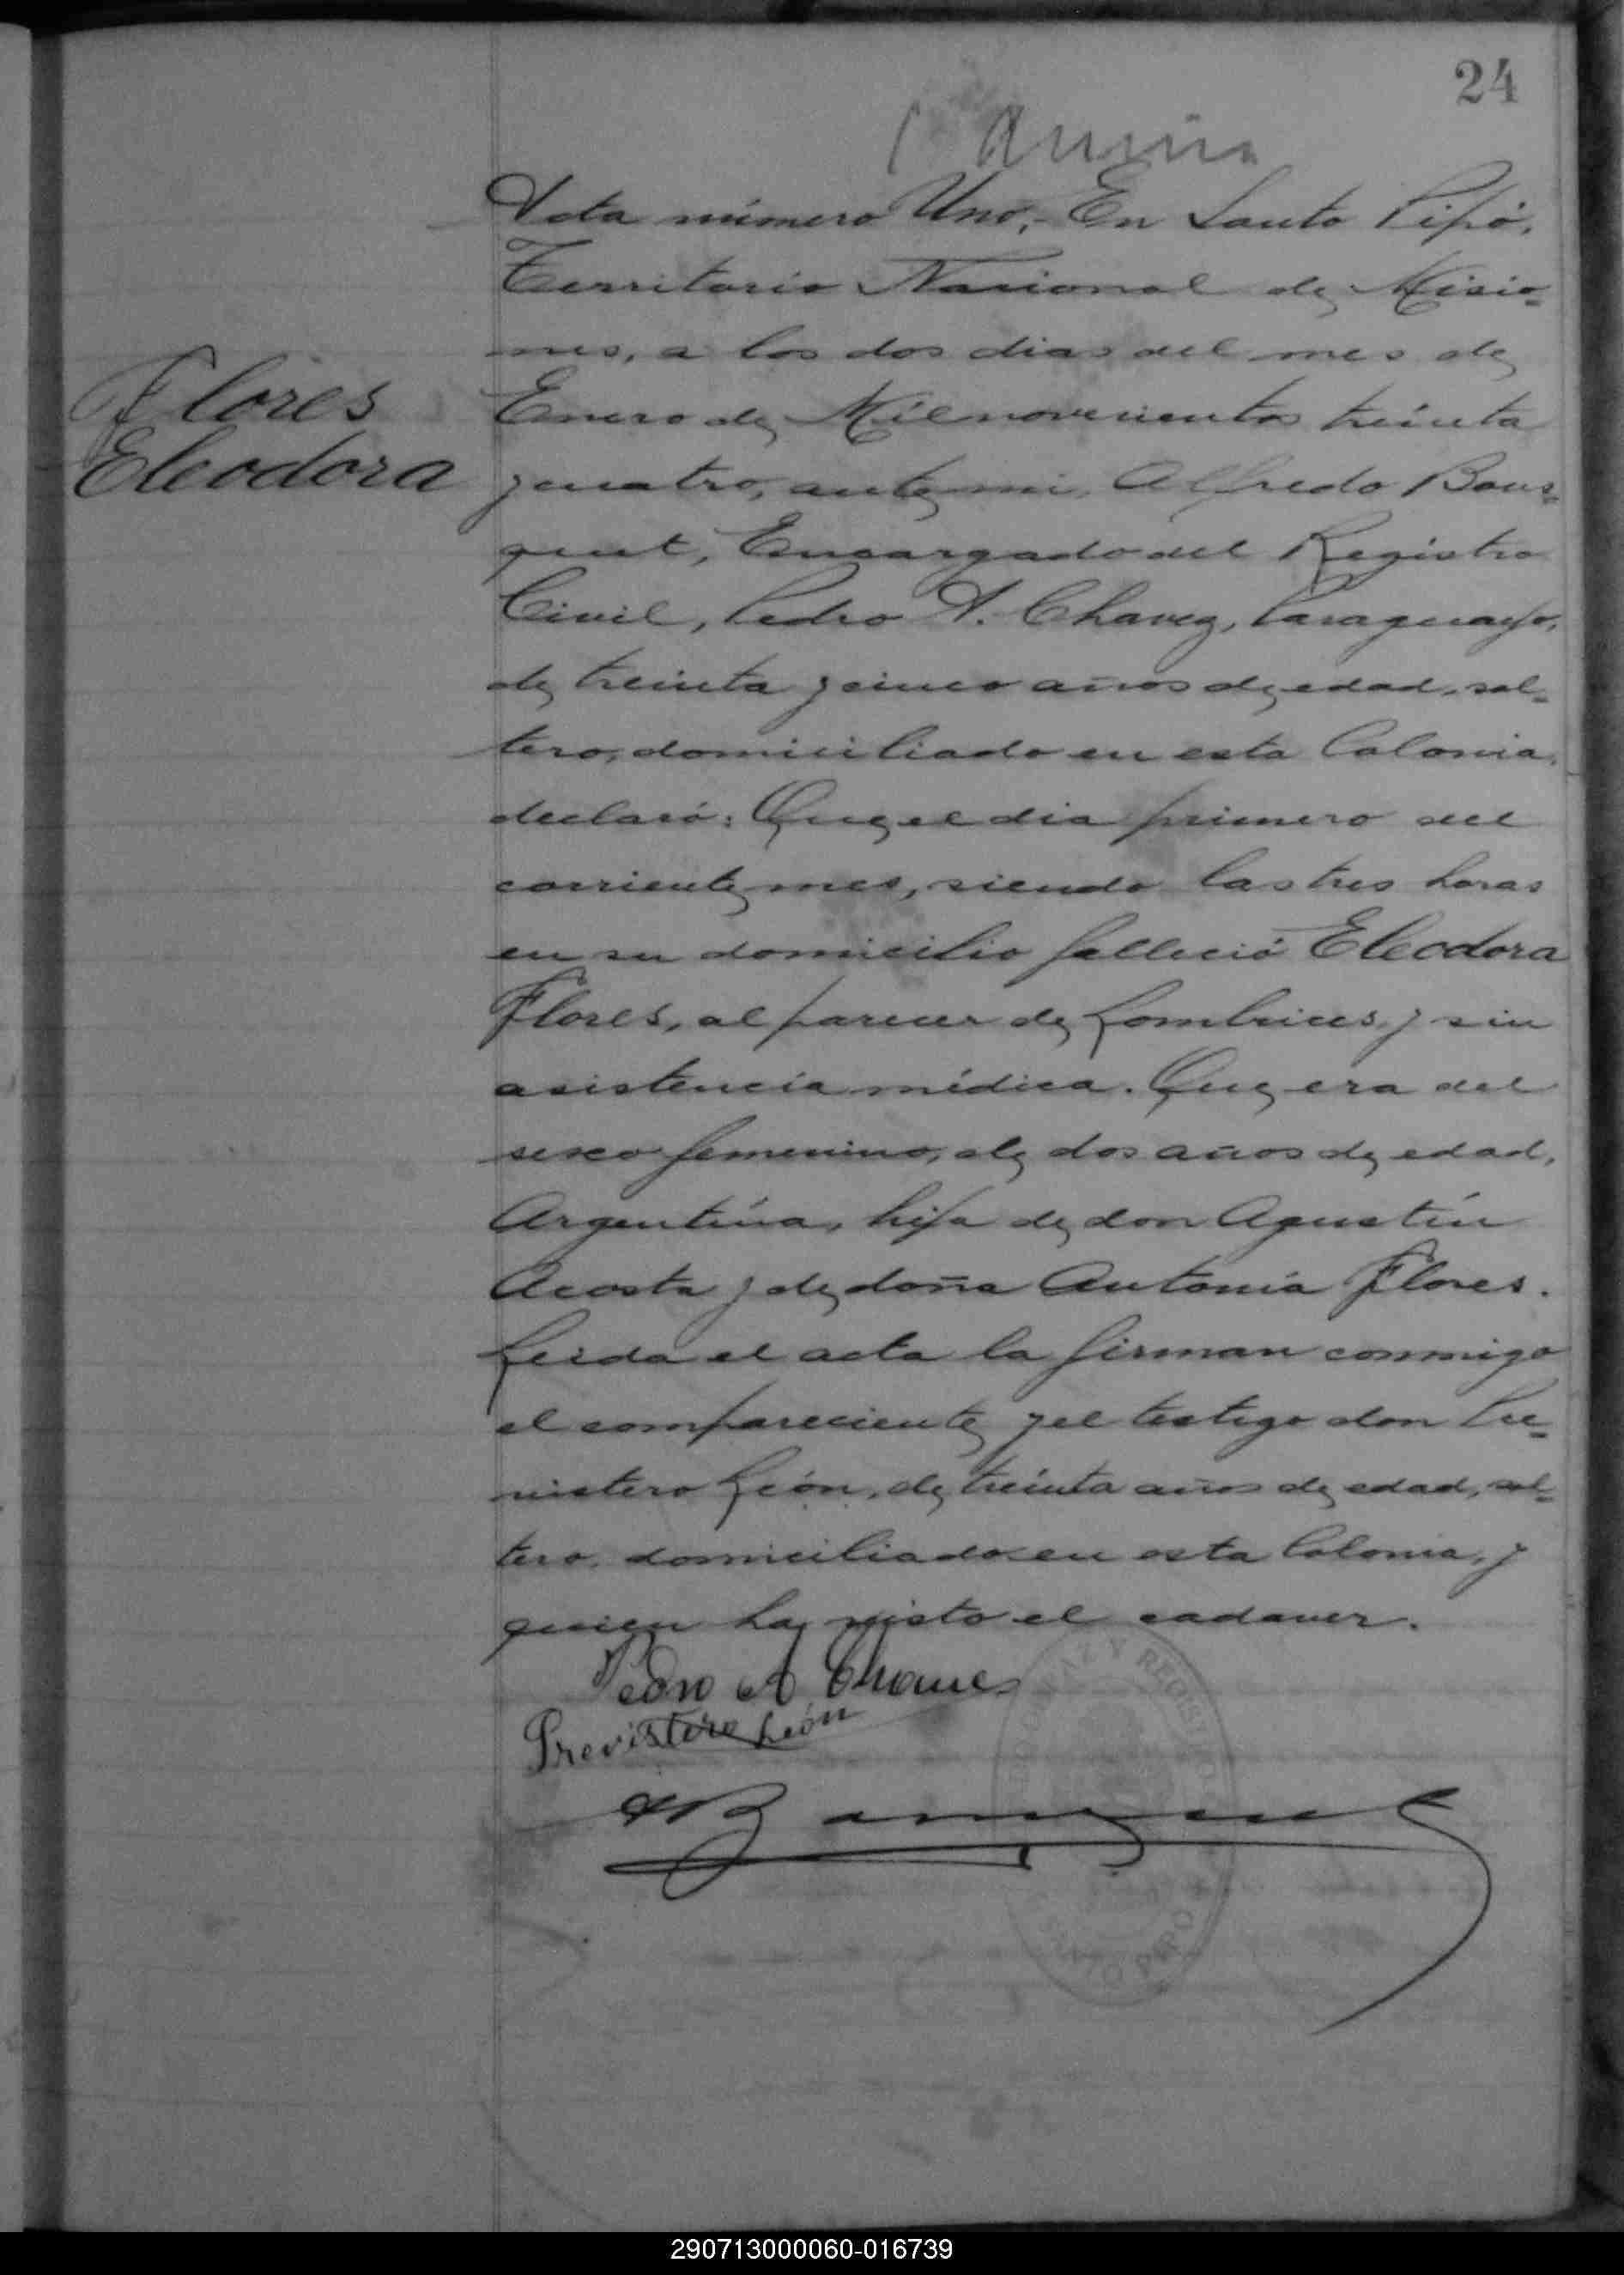 24
Acta número Uno.- En Santo Pipó,
Territorio Nacional de Misio-
nes, a los dos dias del mes de
Flores
Eleodora
Enero de Mil novecientos treinta
y cuatro, ante mi, Alfredo Bous-
quet, Encargado del Registro
Civil, Pedro A. Chavez, Paraguayo,
de treinta y cinco años de edad, sol-
tero, domiciliado en esta Colonia,
declaró: Que el dia primero del
corriente mes, siendo las tres horas
en su domicilio falleció Eleodora
Flores, al parecer de Lombrices y sin
asistencia médica. Que era del
sexo femenino, de dos años de edad,
Argentina, hija de don Agustín
Acosta y de doña Antonia Flores.
Leida el acta la firman conmigo
el compareciente y el testigo don Pre-
vistero León, de treinta años de edad, sol-
tero, domiciliado en esta Colonia, y
quien ha visto el cadaver.
Pedro A Chavez
Previstero León
ABousquet
PAZ Y REGISTRO
SANTO PIPO
290713000060-016739